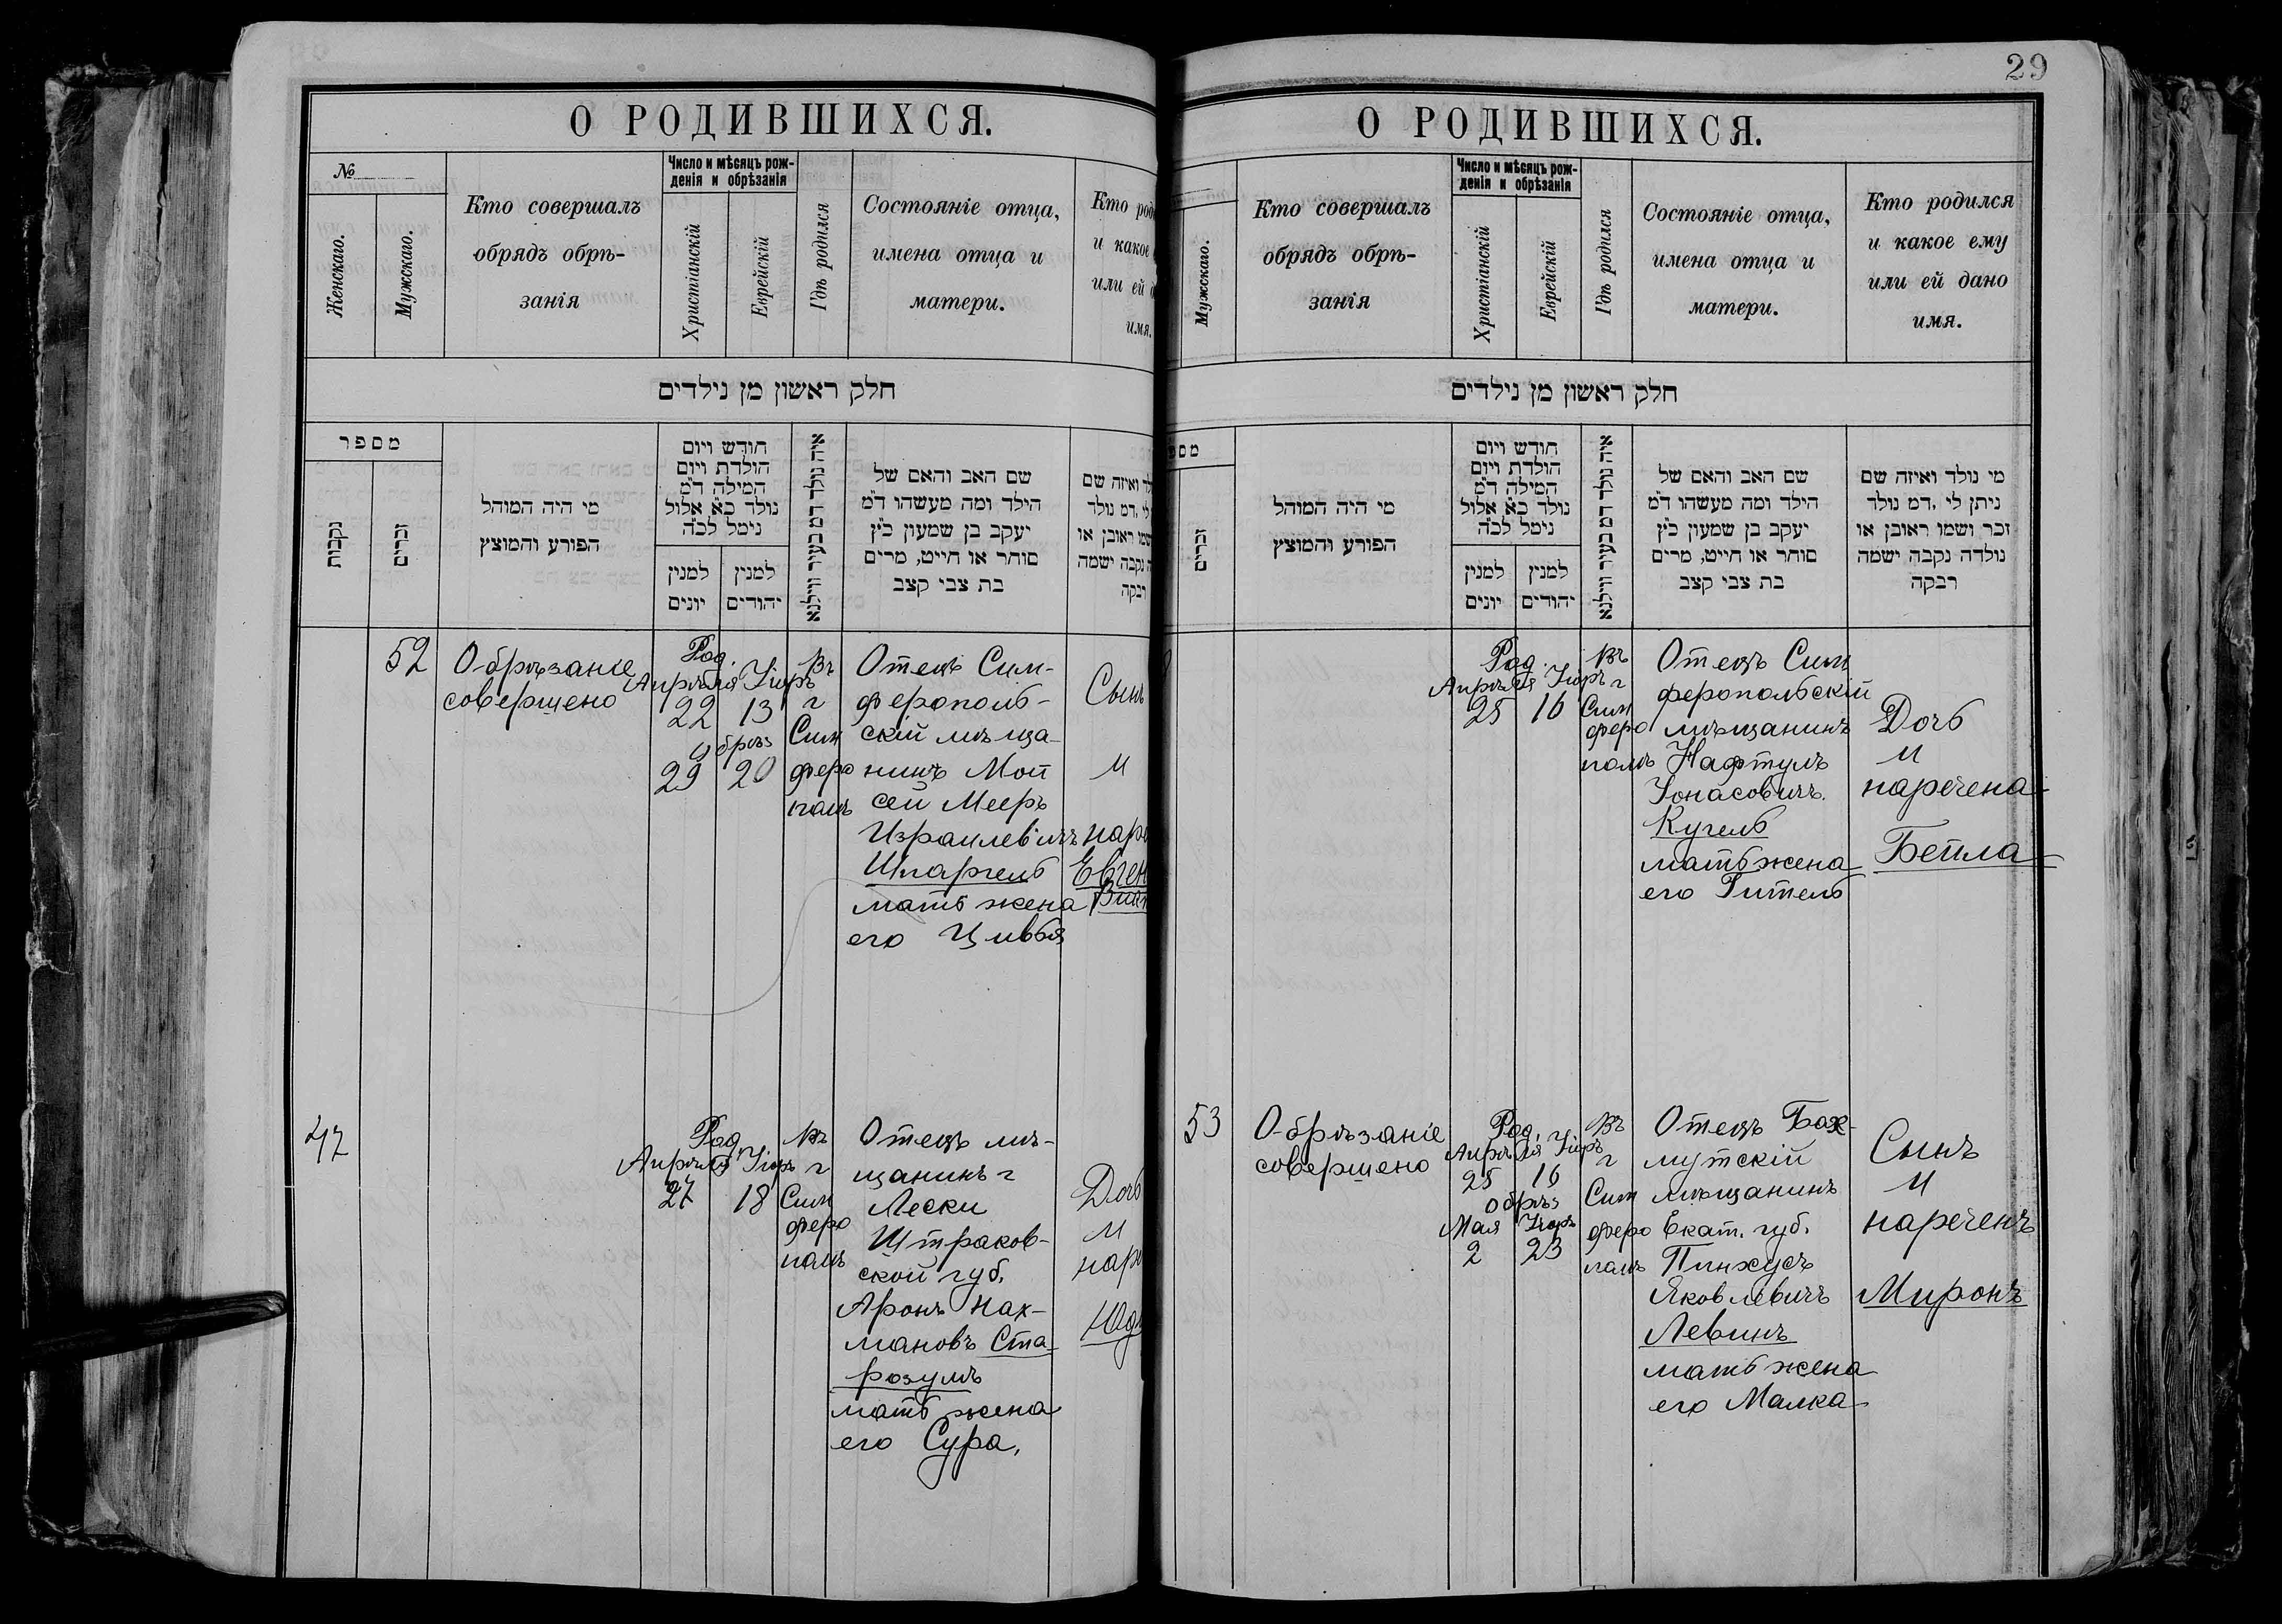 О РОДИВШИХСЯ.
№
Женскаго.
Мужскаго.
Кто совершалъ
обрядъ обрѣ-
занія
Число и мѣсяцъ рож-
денія и обрѣзанія
Христіанскій
Еврейскій
Гдѣ родился
Состояніе отца,
имена отца и
матери.
Кто род
и какое
или ей
имя.
חלק ראשון מן נילדים
מספר
נקבות
זכרים
מי היה המוהל
הפורע והמוצץ
חודש ויום
הולדת ויום
המילה ד"מ
נולד כא אלול
נימל לכ"ה
למנין
יונים
למנין
יהודים
איה נולד דמ בעיר ווילנא
שם האב והאם של
הילד ומה מעשהו ד"מ
יעקב בן שמעון כ"ץ
סוחר או חייט, מרים
בת צבי קצב
לד ואיזה שם
לי ,דמ נולד
שמו ראובן או
ה נקבה ישמה
רבקה
52
Обрѣзаніе
совершено
Род.
Апрѣля Іюръ
22 13
Обрѣз
29 20
Въ
г
Сим
феро
полѣ
Отецъ Сим-
ферополь-
скій мѣща-
нинъ Мои
сей Мееръ
Израилевичъ
Шпаргель
мать жена
его Цивья
Сынъ
и
наре
Евген
47
Род.
Апрѣля Іюръ
27 18
Въ
г
Сим
феро
полѣ
Отецъ мѣ-
щанинъ г
Лески
Штраков-
ской губ.
Аронъ Нах-
мановъ Ста-
розумъ
мать жена
его Сура,
Дочь
и
наре
29
О РОДИВШИХСЯ.
Мужескаго.
Кто совершалъ
обрядъ обрѣ-
занія
Число и мѣсяцъ рож-
денія и обрѣзанія
Христіанскій
Еврейскій
Гдѣ родился
Состояніе отца,
имена отца и
матери.
Кто родился
и какое ему
или ей дано
имя.
חלק ראשון מן נילדים
מספ
זכרים
מי היה המוהל
הפורע והמוצץ
חודש ויום
הולדת ויום
המילה ד"מ
נולד כא אלול
נימל לכ"ה
למנין
יונים
למנין
יהודים
איה נולד דמ בעיר ווילנא
שם האב והאם של
הילד ומה מעשהו ד"מ
יעקב בן שמעון כ"ץ
סוחר או חייט, מרים
בת צבי קצב
מי נולד ואיזה שם
ניתן לי ,דמ נולד
זכר ושמו ראובן או
נולדה נקבה ישמה
רבקה
Род.
Апрѣля Іюръ
25 16
Въ
г
Сим
феро
полѣ
Отецъ Сим
феропольскій
мѣщанинъ
Нафтулъ
Іонасовичъ
Кугель
мать жена
его Гитель
Дочь
и
наречена
Бейла
53
Обрѣзаніе
совершено
Род.
Апрѣля Іюръ
25 16
Обрѣз
Мая Іюръ
2 23
Въ
г
Сим
феро
полѣ
Отецъ Бах-
мутскій
мѣщанинъ
Екат. губ.
Пинхусъ
Яковлевичъ
Левинъ
мать жена
его Малка
Сынъ
и
нареченъ
Миронъ